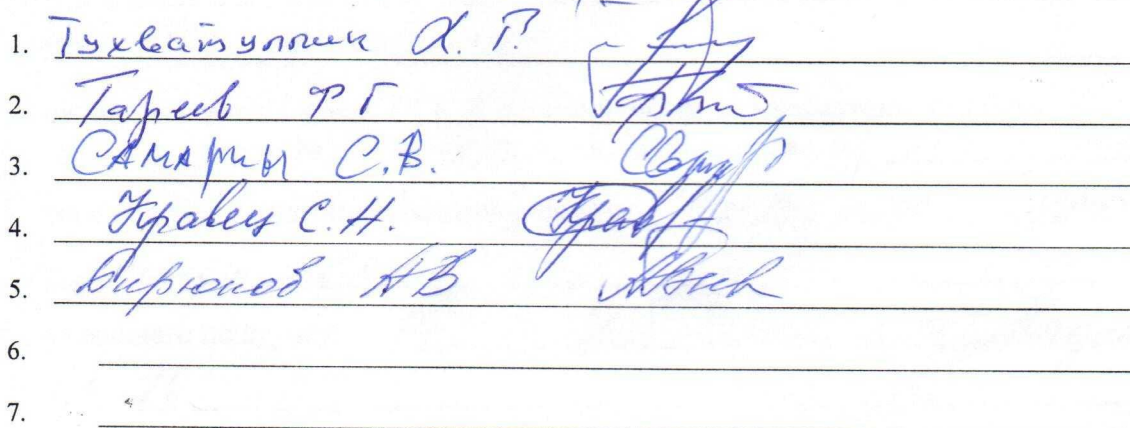 1. Тухватуллин Х. Г.
2. Гареев Р Г
3. САМАРЦЫ С.В.
4. Кравец С.Н.
5. Бирюков АВ
6.
7.